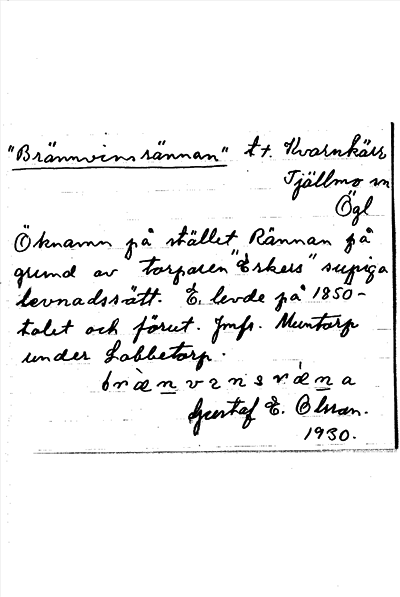 "Brännvinsrännan" t. Kvarnkärr
Tjällmo sn
Ögl
Öknamn på stället Rännan på
grund av torparen "Eskers" supiga
levnadssätt. E. levde på 1850-
talet och förut. Jmfr. Muntorp
under Labbetorp.
brænvensræna
Gustaf E. Olsson.
1930.